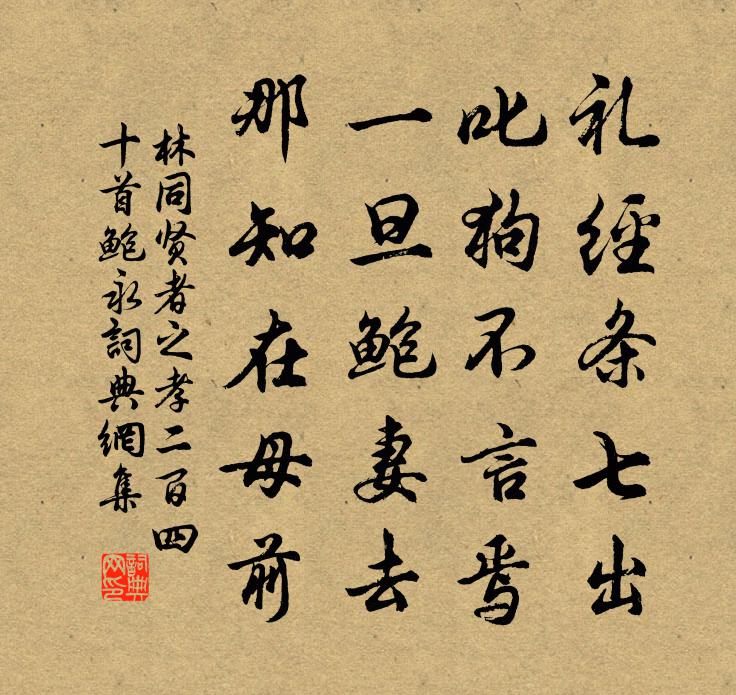 礼經条七出
叱狗不言焉
一旦鲍妻去
那知在母前
林同贤者之孝二百四
十首鲍永詞典網集
詞典网印